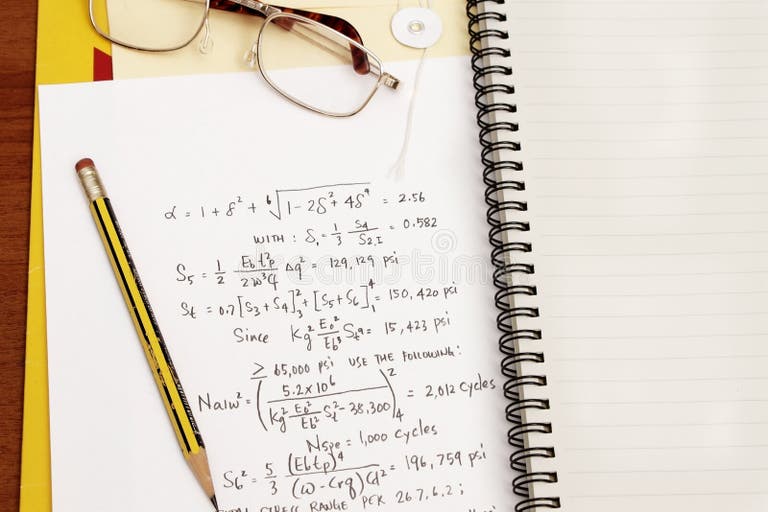 α = 1 + δ² + ⁶√(1 - 2δ² + 4δ⁹) = 2.56
WITH : δ₁ = 1/3 S4/S2,I = 0.582
S5 = 1/2 Eb t²p/2ω³q Δq² = 129,129 psi
St = 0.7[S3+S4]²₃ + [S5+S6]⁴₁ = 150,420 psi
Since Kg² E0²/Eb³ St⁹ = 15,423 psi
≥ 65,000 psi USE THE FOLLOWING:
Nalw² = (5.2x10⁶ / Kg² E0²/Eb² St² - 38,300)²₄ = 2,012 cycles
Nspe = 1,000 cycles
S6² = 5/3 (Ebtp)⁴/(ω - Crq)d² = 196,759 psi
STRESS RANGE PER 26.7.6.2;
dreamstime